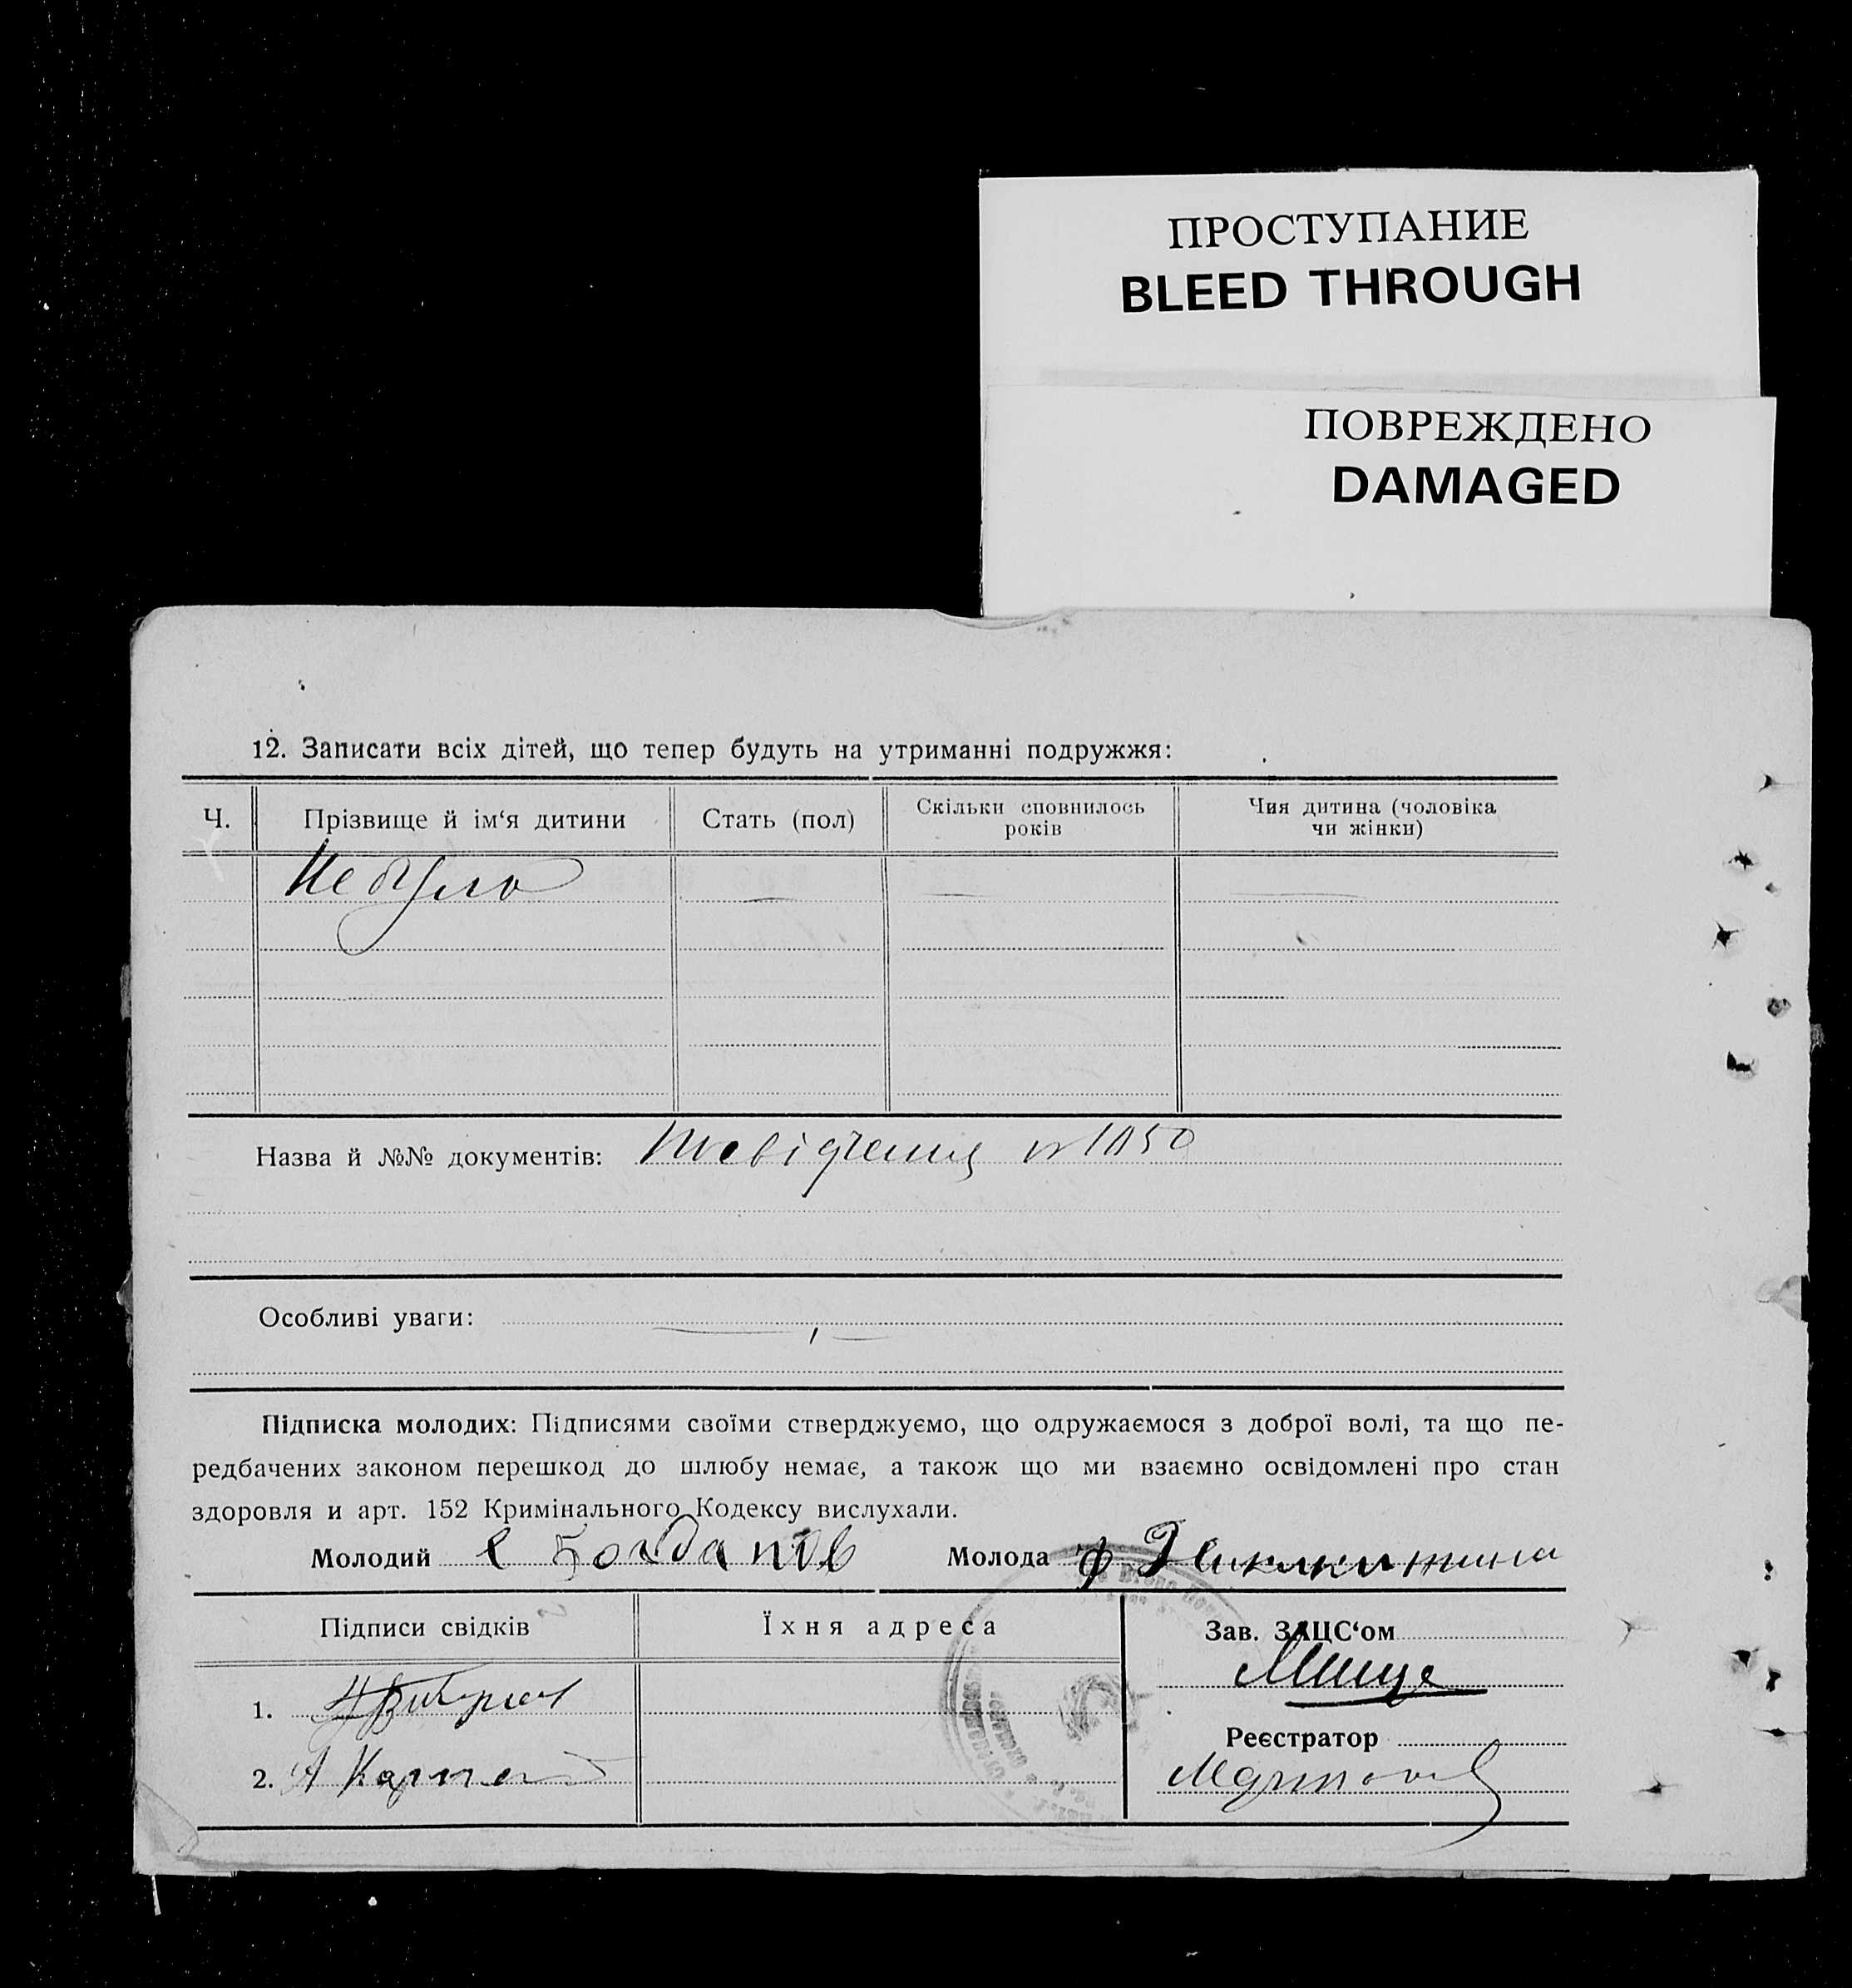 ПРОСТУПАНИЕ
BLEED THROUGH
ПОВРЕЖДЕНО
DAMAGED
12. Записати всіх дітей, що тепер будуть на утриманні подружжя:
Ч.
Прізвище й ім‘я дитини
Стать (пол)
Скільки сповнилось
років
Чия дитина (чоловіка
чи жінки)
Не було
Назва й №№ документів: Посвідчення № 1050
Особливі уваги:
Підписка молодих: Підписями своїми стверджуємо, що одружаємося з доброї волі, та що пе-
редбачених законом перешкод до шлюбу немає, а також що ми взаємно освідомлені про стан
здоровля и арт. 152 Кримінального Кодексу вислухали.
Молодий Богданов
Молода Ф
Підписи свідків
Їхня адреса
Зав. ЗАЦС‘ом
1.
Реєстратор
2. А